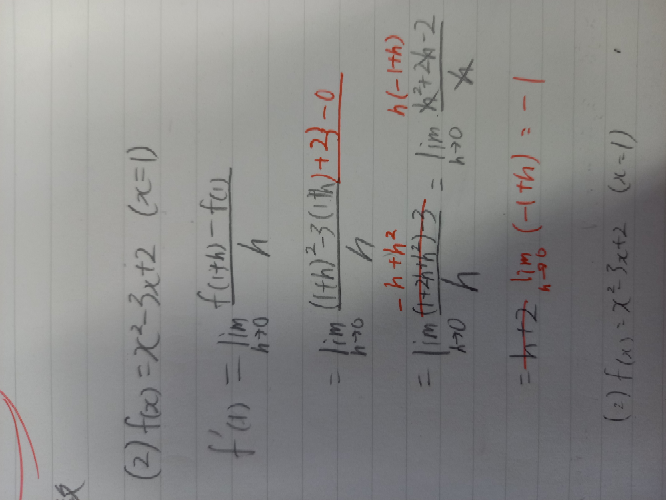 (2) f(x) = x²-3x+2 (x=1)
f'(1) = lim h→0 f(1+h)-f(1) / h
= lim h→0 {(1+h)²-3(1+h)+2}-0 / h
-h+h² h(-1+h)
= lim h→0 (1+2h+h²)-3 / h = lim h→0 h²+2h-2 / h
= h+2 lim h→0 (-1+h) = -1
(2) f(x) = x²-3x+2 (x=1)